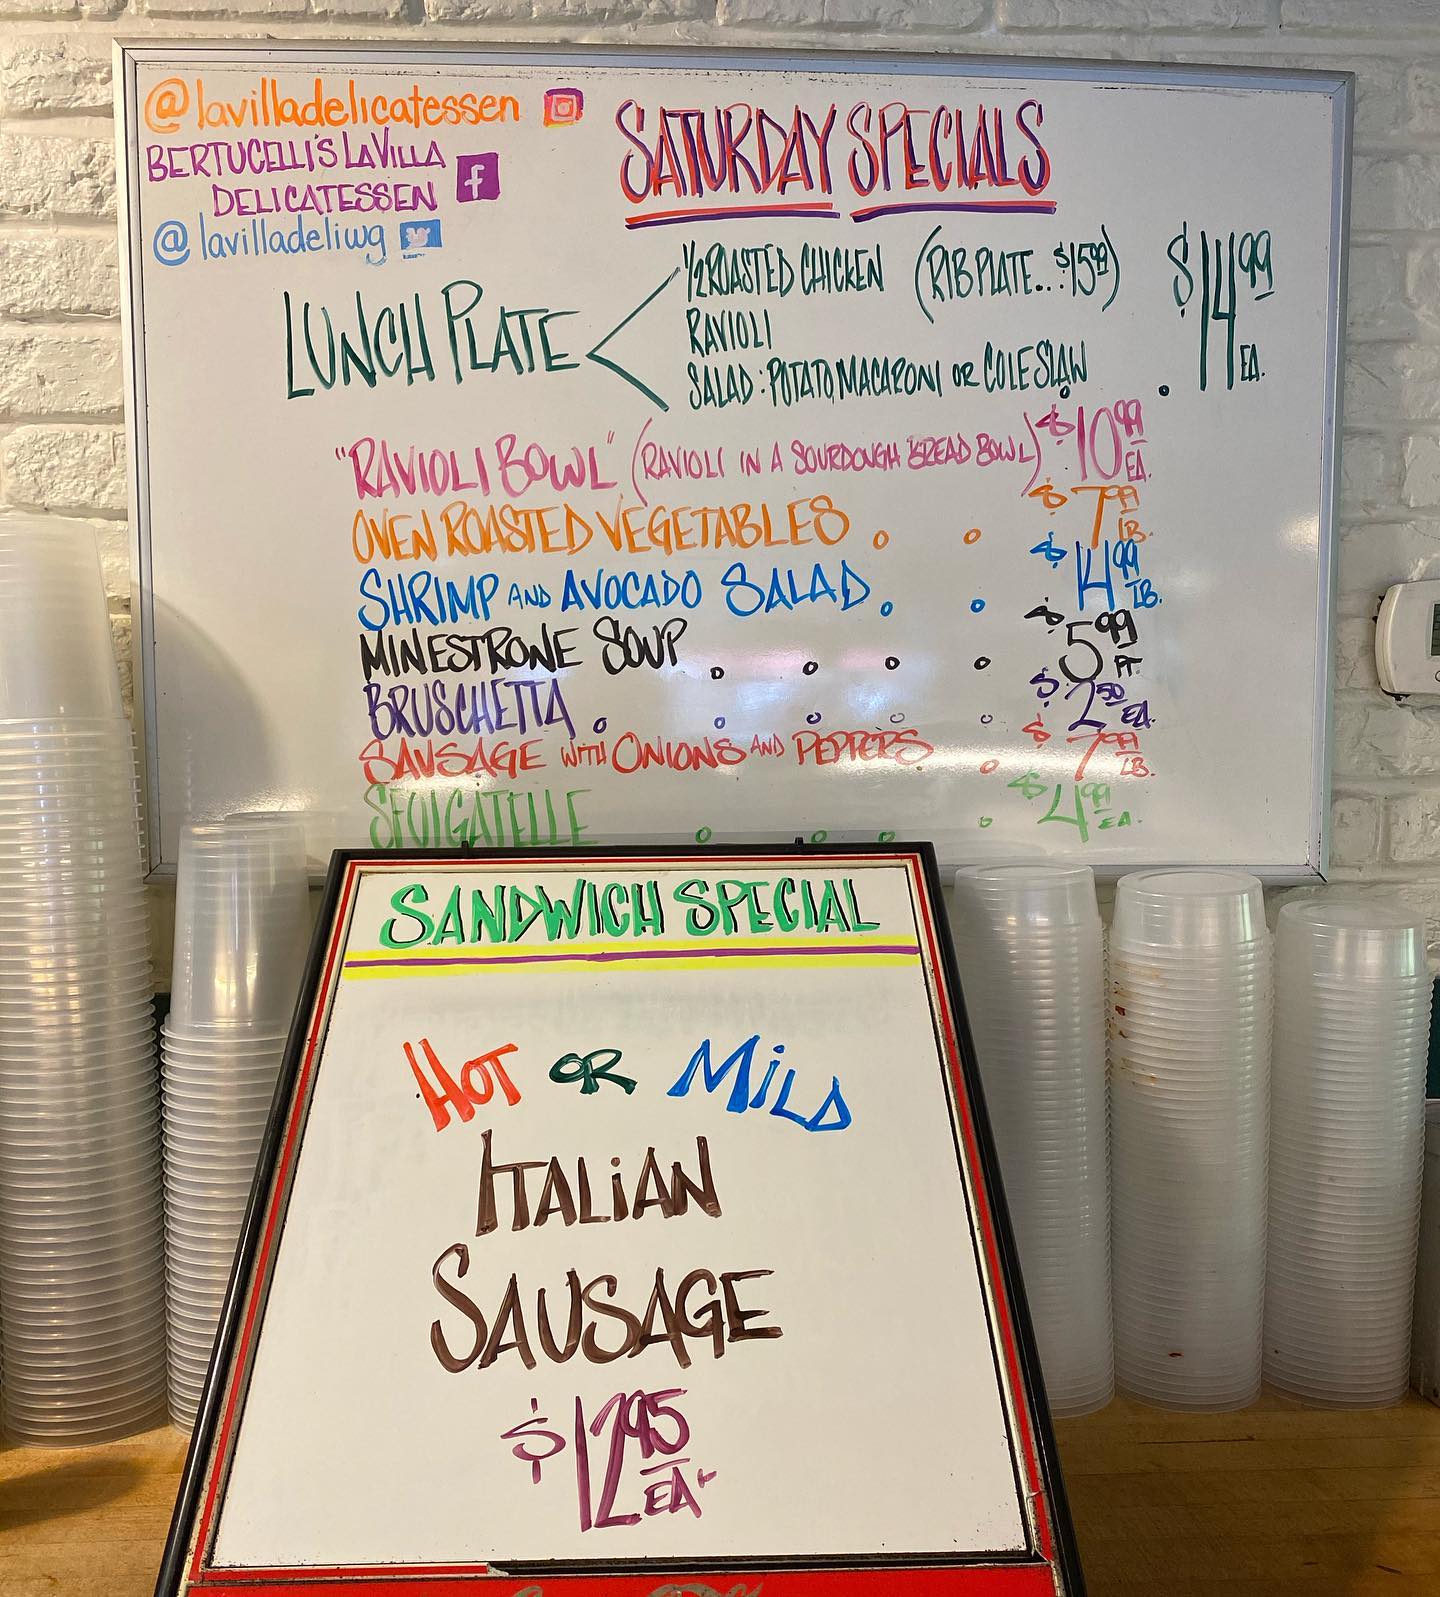 @lavilladelicatessen
BERTUCELLI'S LAVILLA
DELICATESSEN
@lavilladeliwg
SATURDAY SPECIALS
LUNCH PLATE
1/2 ROASTED CHICKEN (RIB PLATE...$15.99)
RAVIOLI
SALAD: POTATO, MACARONI OR COLESLAW . . $14.99 EA.
"RAVIOLI BOWL" (RAVIOLI IN A SOURDOUGH BREAD BOWL) $10.99 EA.
OVEN ROASTED VEGETABLES . . $7.99 LB.
SHRIMP AND AVOCADO SALAD . . $14.99 LB.
MINESTRONE SOUP . . . . $5.99 PT.
BRUSCHETTA . . . . . $2.50 EA.
SAUSAGE WITH ONIONS AND PEPPERS . $7.99 LB.
SFOIGATELLE . . . . $4.99 EA.
SANDWICH SPECIAL
HOT OR MiLD
ITALiAN
SAUSAGE
$12.95 EA